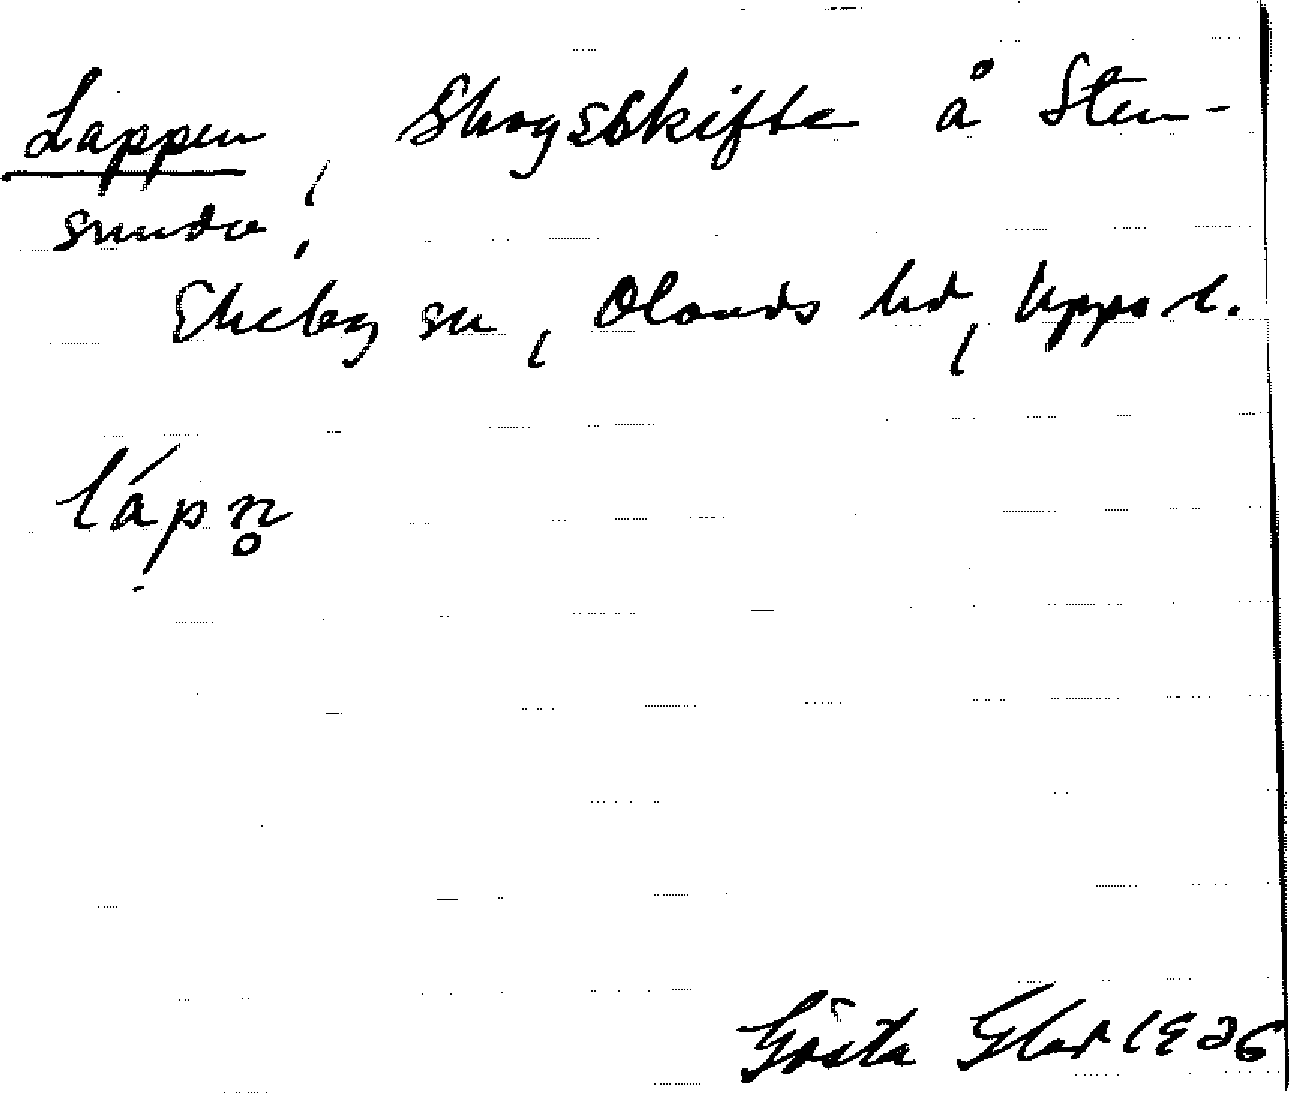 Lappen, Skogsskifte å Sten-
sunda,
Ekeby sn, Olands hd, Upps. l.
lápn̥
Gösta Glad 1926